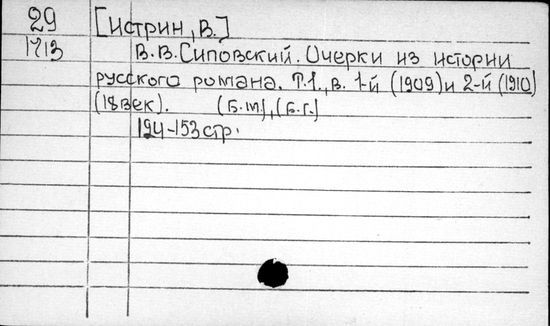 29 [Истрин, В.]
1713 В.В. Сиповский. Очерки из истории
русского романа. Т.1., в. 1-й (1909) и 2-й (1910)
(18 век). (Б.м), (Б.г.)
124-153 стр.